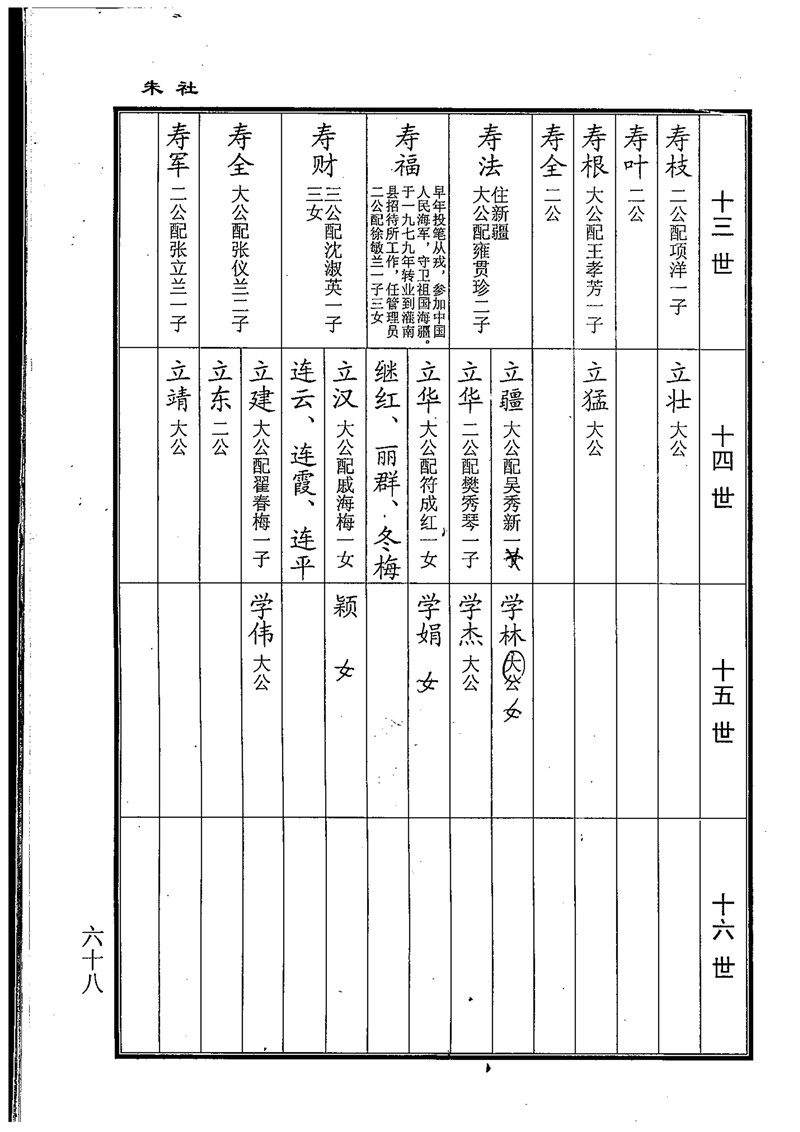 朱社
十三世
寿枝 二公配项洋一子
寿叶 二公
寿根 大公配王孝芳一子
寿全 二公
寿法 住新疆
大公配雍贯珍二子
寿福 早年投笔从戎，参加中国
人民海军，守卫祖国海疆。
于一九七九年转业到灌南
县招待所工作，任管理员
二公配徐敏兰一子三女
寿财 三公配沈淑英一子
三女
寿全 大公配张仪兰二子
寿军 二公配张立兰一子
十四世
立壮 大公
立猛 大公
立疆 大公配吴秀新一女
立华 二公配樊秀琴一子
立华 大公配符成红一女
继红、丽群、冬梅
立汉 大公配戚海梅一女
连云、连霞、连平
立建 大公配翟春梅一子
立东 二公
立靖 大公
十五世
学林 大公 女
学杰 大公
学娟 女
颖 女
学伟 大公
十六世
六十八